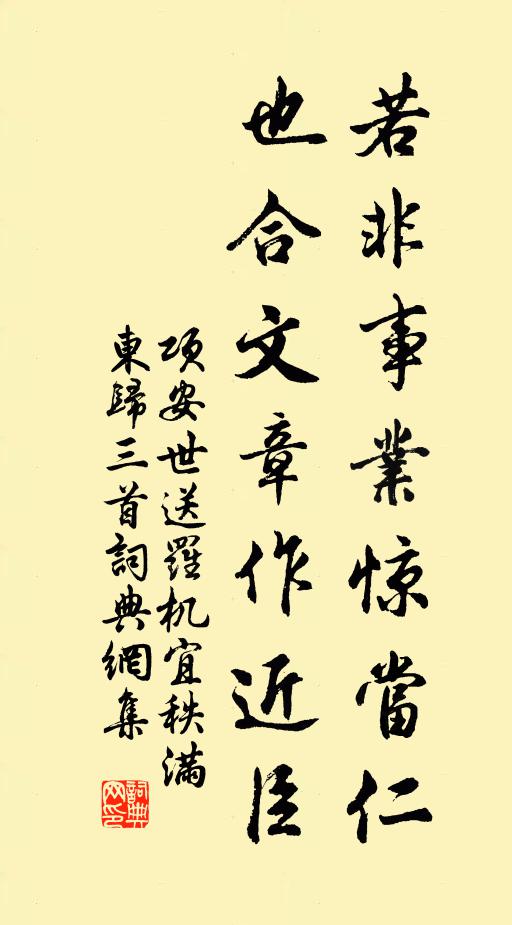 若非事業惊當仁
也合文章作近臣
項安世送羅机宜秩滿
東歸三首詞典網集
詞典
网印